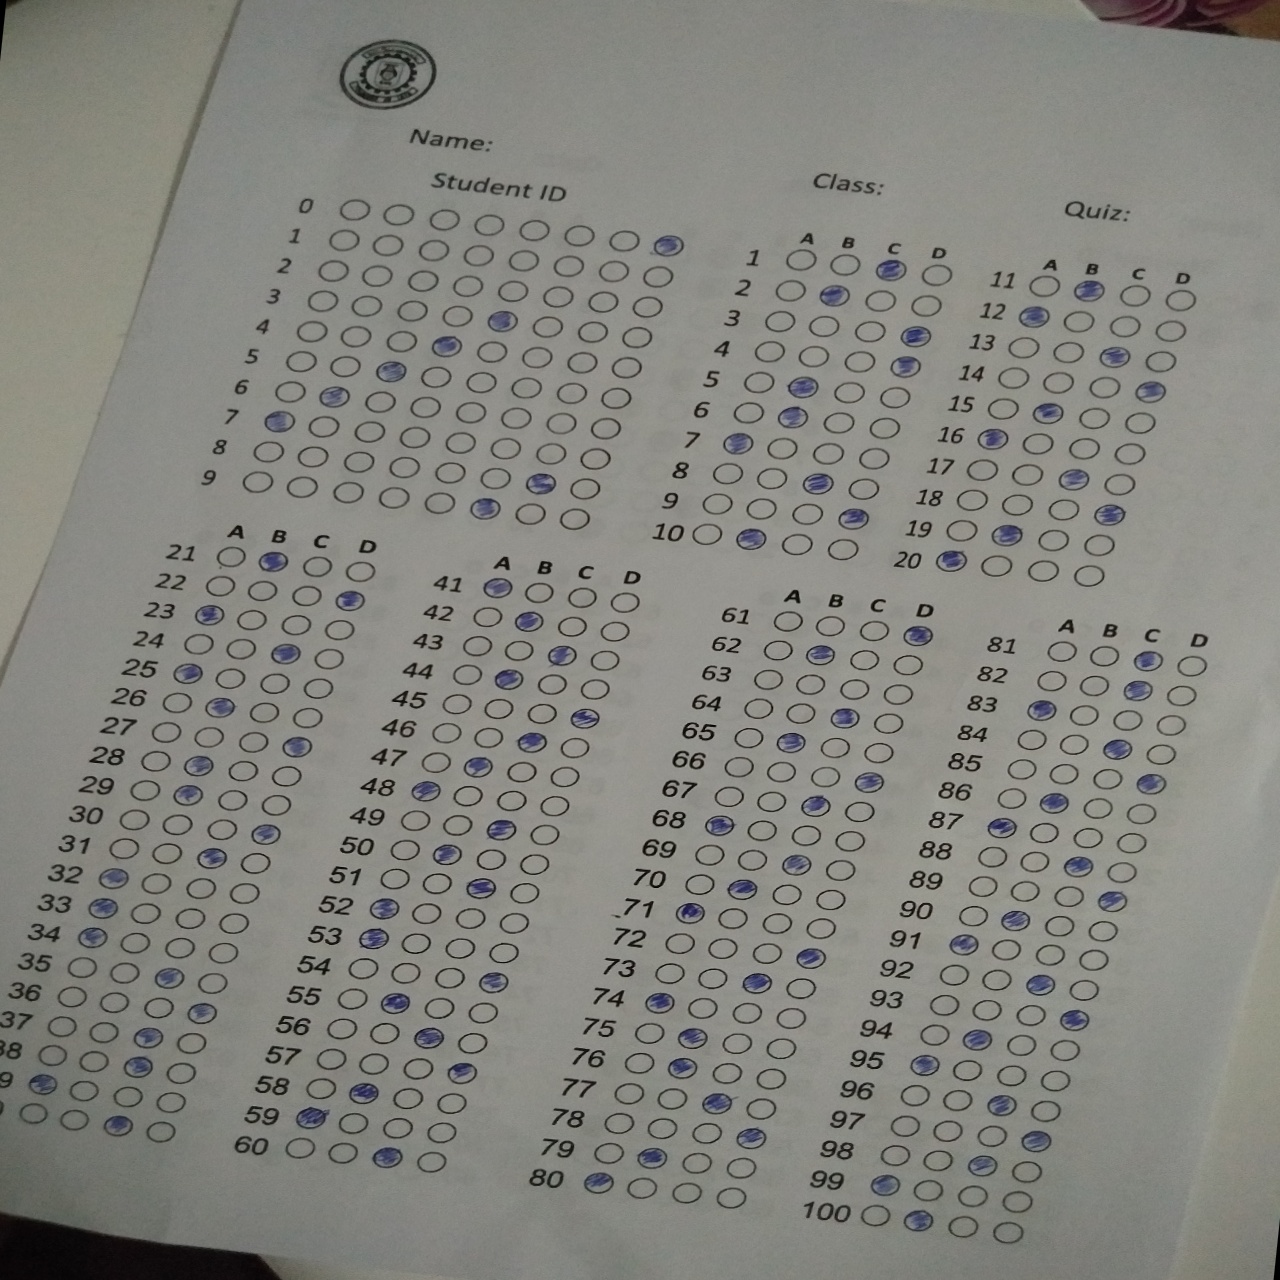 Name:
Student ID
Class:
Quiz:
0
1
2
3
4
5
6
7
8
9
A B C D
1
2
3
4
5
6
7
8
9
10
A B C D
11
12
13
14
15
16
17
18
19
20
A B C D
21
22
23
24
25
26
27
28
29
30
31
32
33
34
35
36
37
38
9
A B C D
41
42
43
44
45
46
47
48
49
50
51
52
53
54
55
56
57
58
59
60
A B C D
61
62
63
64
65
66
67
68
69
70
71
72
73
74
75
76
77
78
79
80
A B C D
81
82
83
84
85
86
87
88
89
90
91
92
93
94
95
96
97
98
99
100